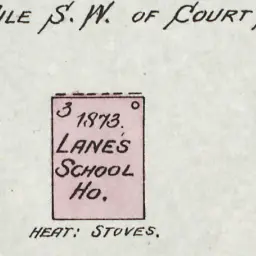 ILE S.W. OF COURT
3
1873.
LANE'S
SCHOOL
HO.
HEAT: STOVES.